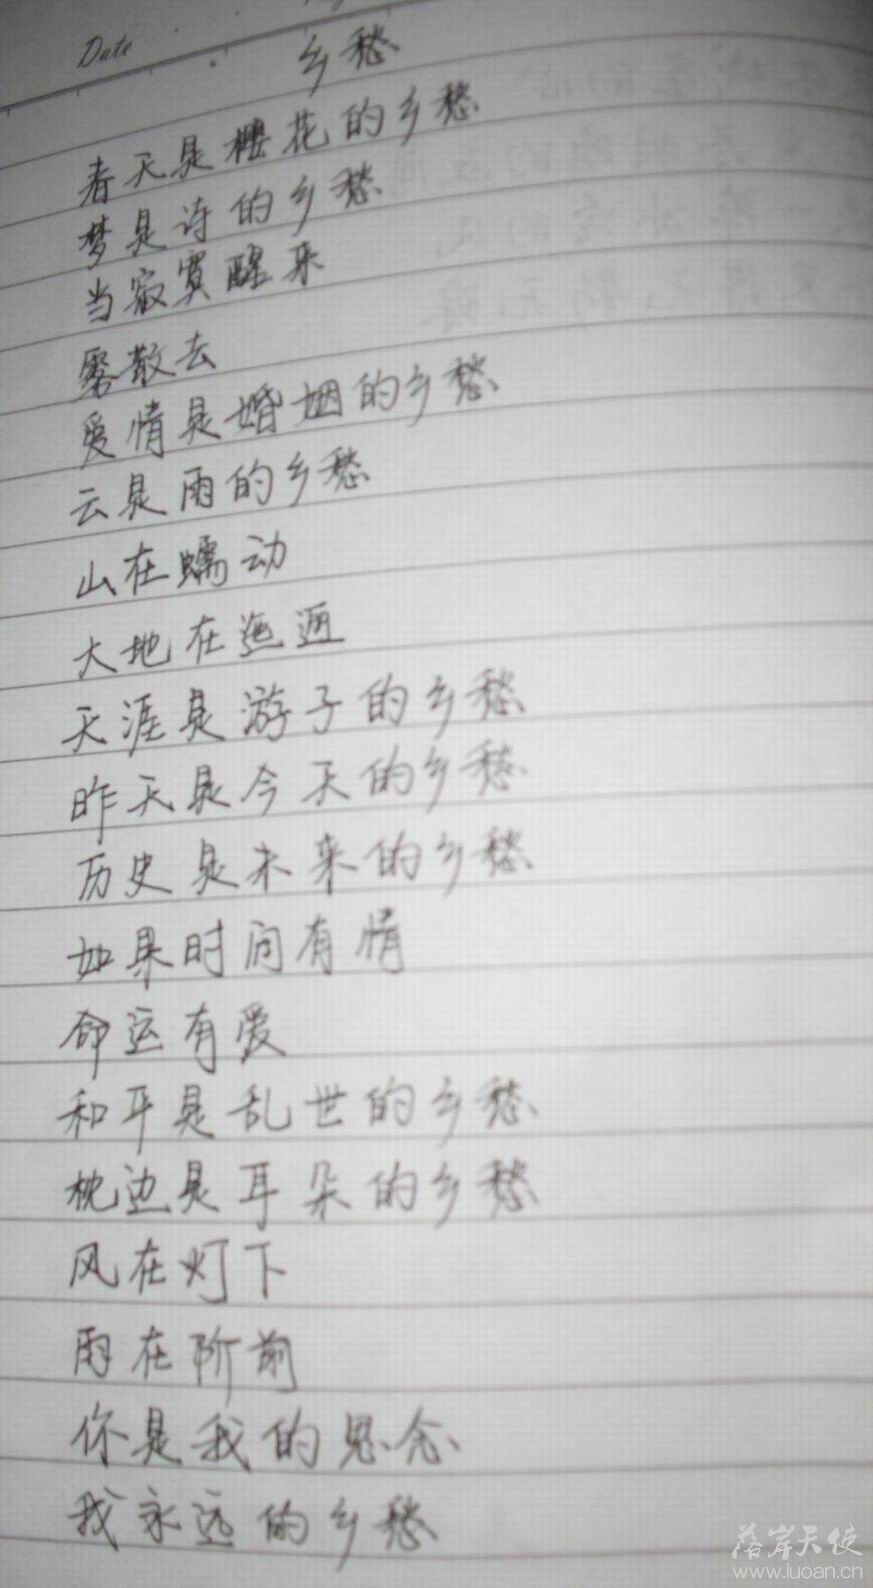 Date
乡愁
春天是樱花的乡愁
梦是诗的乡愁
当寂寞醒来
雾散去
爱情是婚姻的乡愁
云是雨的乡愁
山在蠕动
大地在迤逦
天涯是游子的乡愁
昨天是今天的乡愁
历史是未来的乡愁
如果时间有情
命运有爱
和平是乱世的乡愁
枕边是耳朵的乡愁
风在灯下
雨在阶前
你是我的思念
我永远的乡愁
落岸天使
www.luoan.cn